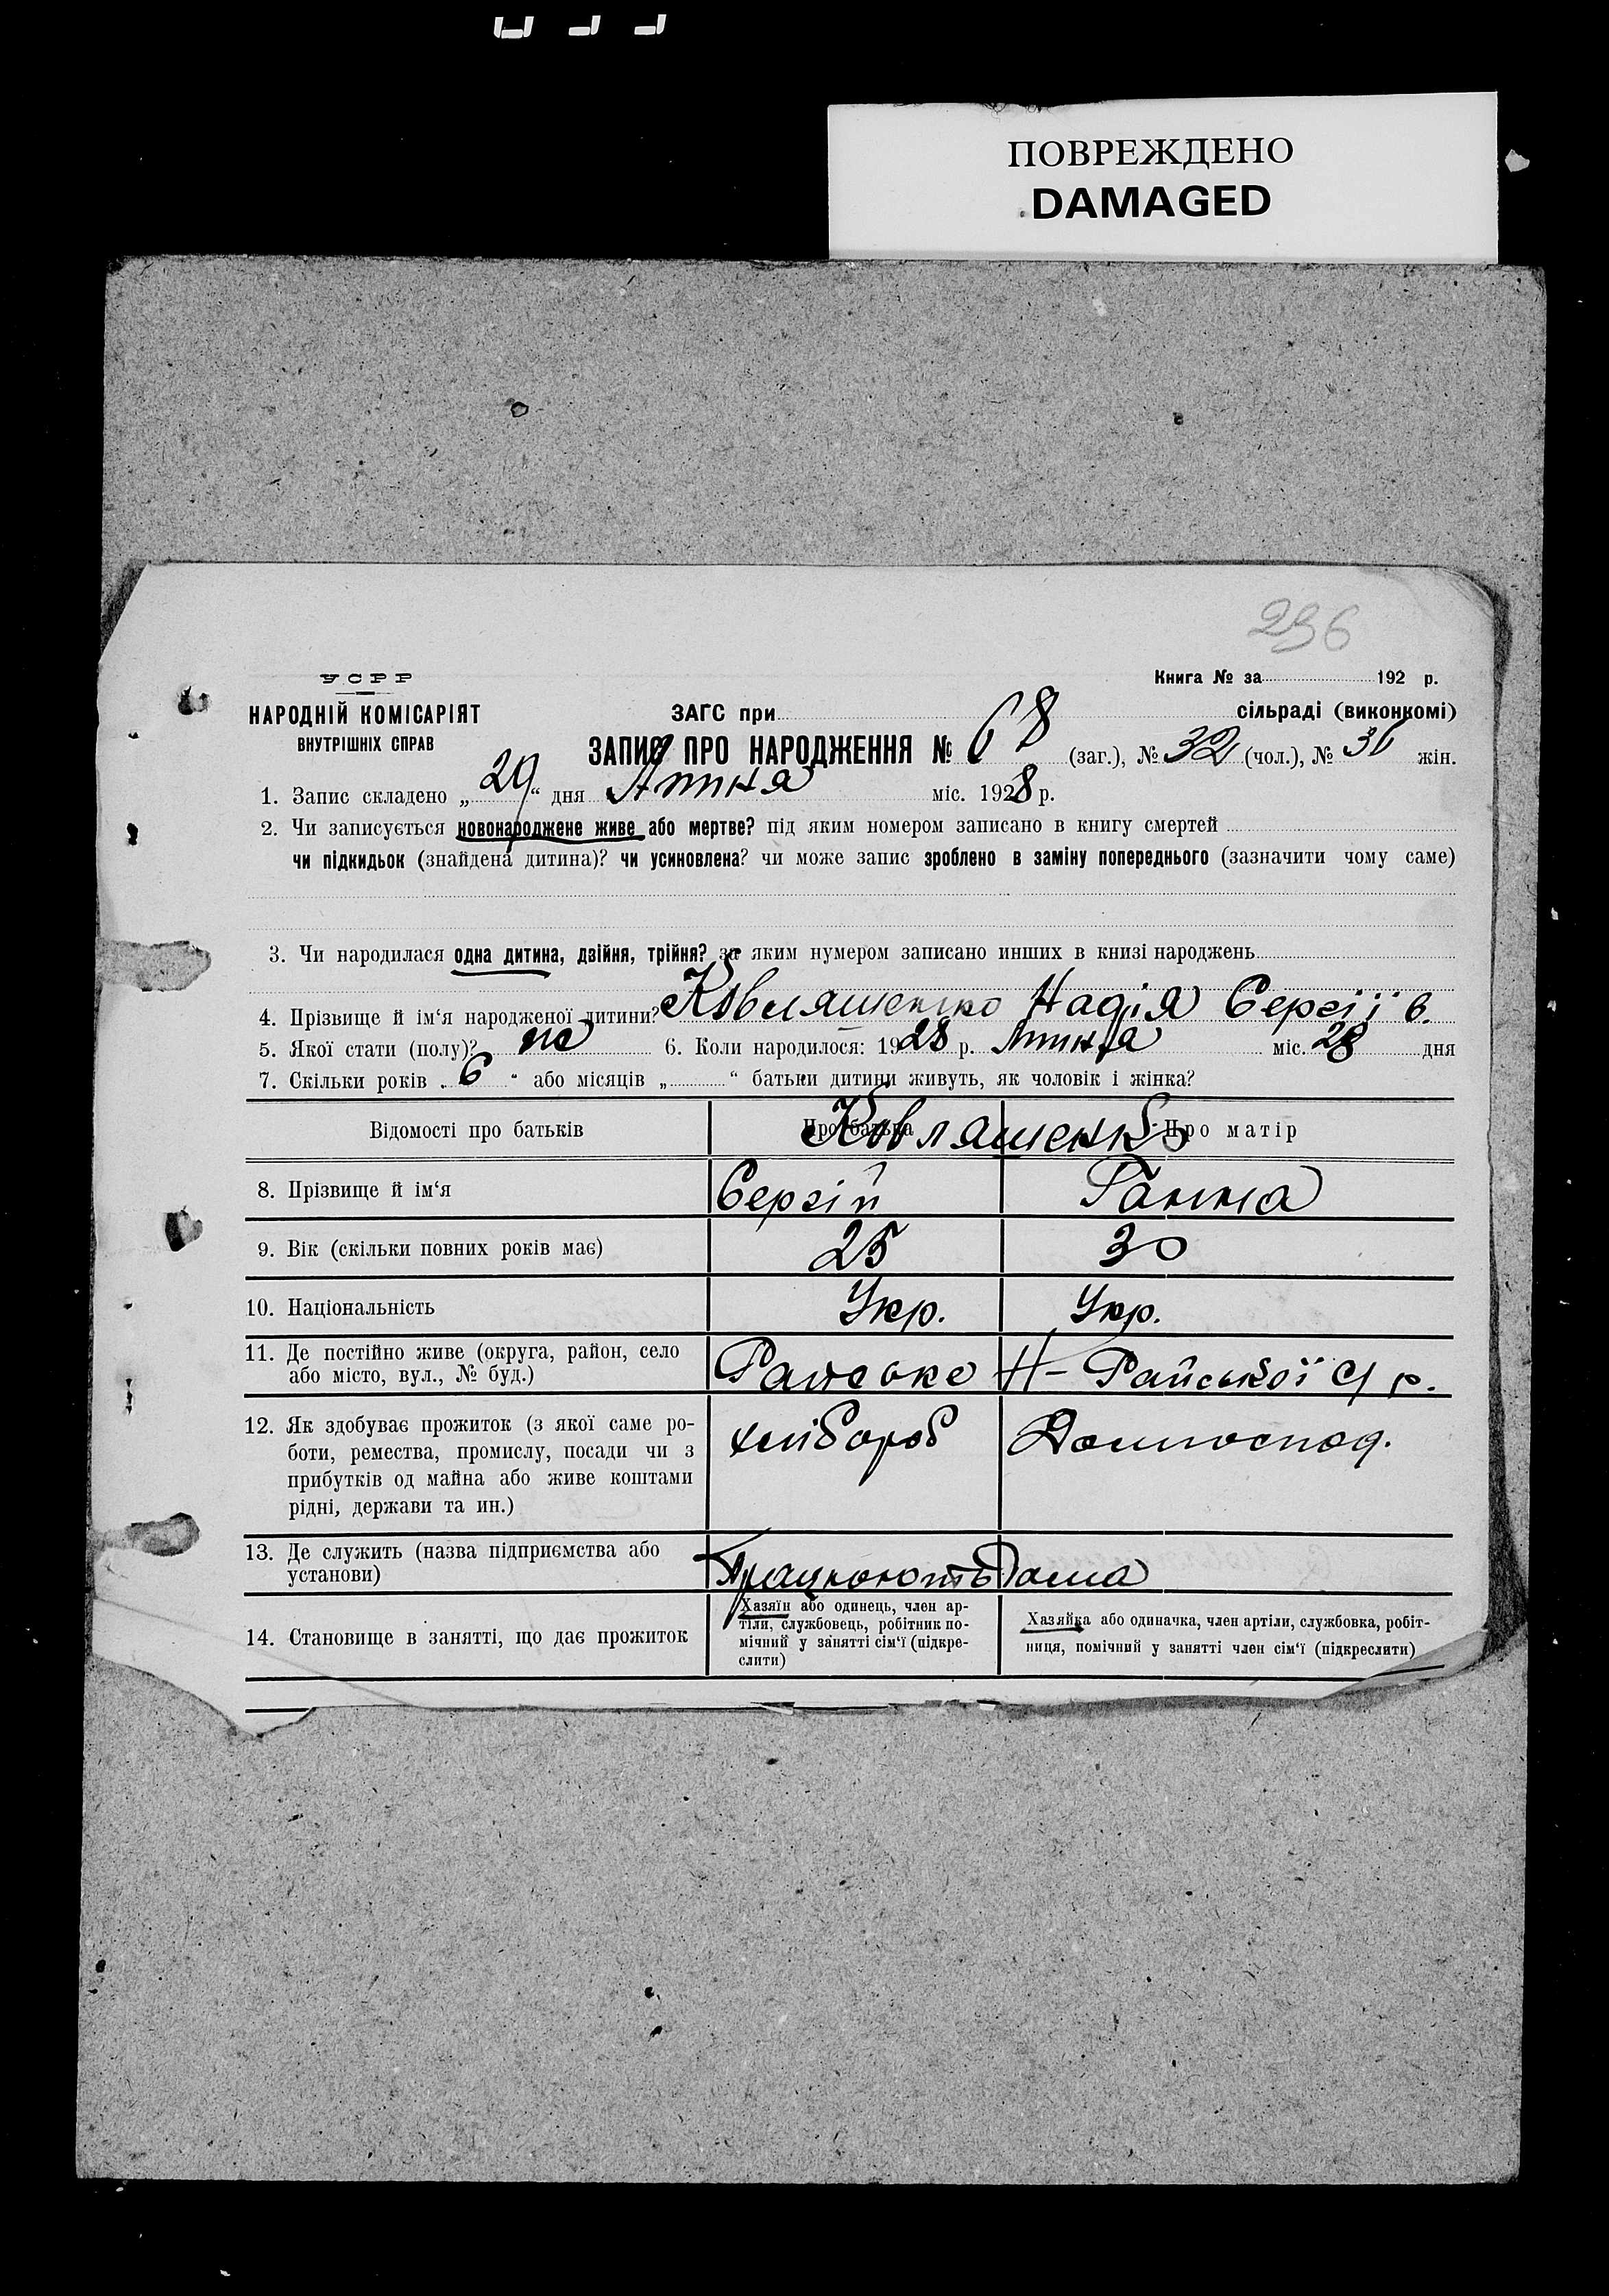 ПОВРЕЖДЕНО
DAMAGED
236
УСРР
НАРОДНІЙ КОМІСАРІЯТ
ВНУТРІШНІХ СПРАВ
Книга № за 192 р.
ЗАГС при сільраді (виконкомі)
ЗАПИС ПРО НАРОДЖЕННЯ № 68 (заг.), № 32 (чол.), № 36 жін.
1. Запис складено „29“ дня Липня міс. 1928 р.
2. Чи записується новонароджене живе або мертве? під яким номером записано в книгу смертей
чи підкидьок (знайдена дитина)? чи усиновлена? чи може запис зроблено в заміну попереднього (зазначити чому саме)
3. Чи народилася одна дитина, двійня, трійня? за яким нумером записано инших в книзі народжень
4. Прізвище й ім‘я народженої дитини? Ковляшенко Надія Сергіїв.
5. Якої стати (полу)? жін 6. Коли народилося: 1928 р. Липня міс. 28 дня
7. Скільки років „6“ або місяців „ “ батьки дитини живуть, як чоловік і жінка?
Відомості про батьків Про батька Про матір
Ковляшенко
8. Прізвище й ім‘я Сергій Ганна
9. Вік (скільки повних років має) 25 30
10. Національність Укр. Укр.
11. Де постійно живе (округа, район, село Райське Н-Райської с/р.
або місто, вул., № буд.)
12. Як здобуває прожиток (з якої саме ро- хлібороб Домгоспод.
боти, ремества, промислу, посади чи з
прибутків од майна або живе коштами
рідні, держави та ин.)
13. Де служить (назва підприємства або Працюють дома
установи)
14. Становище в занятті, що дає прожиток
Хазяїн або одинець, член ар-
тіли, службовець, робітник по-
мічний у занятті сім‘ї (підкре-
слити)
Хазяйка або одиначка, член артіли, службовка, робіт-
ниця, помічний у занятті член сім‘ї (підкреслити)